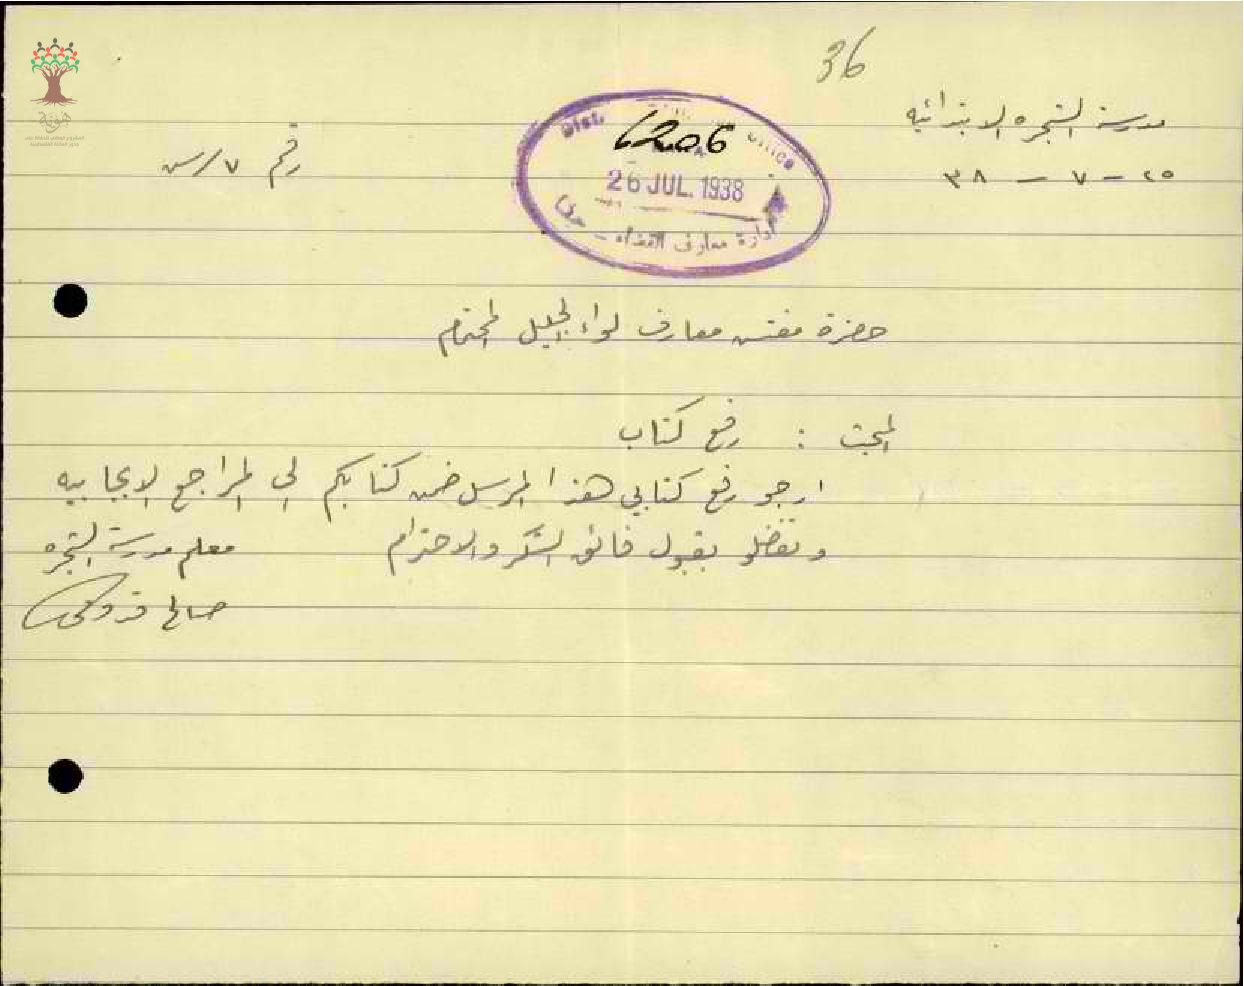 36
مدرسة الشجره الابتدائيه
٢٥ - ٧ - ٣٨
رقم ٧/س
Dist. Office
6206
26 JUL. 1938
ادارة معارف القضاء - حيفا
حضرة مفتش معارف لواء الجليل المحترم
المبحث : رفع كتاب
ارجو رفع كتابي هذا المرسل ضمن كتابكم الى المراجع الايجابيه
وتفضلو بقبول فائق الشكر والاحترام
معلم مدرسة الشجره
صالح
هوية